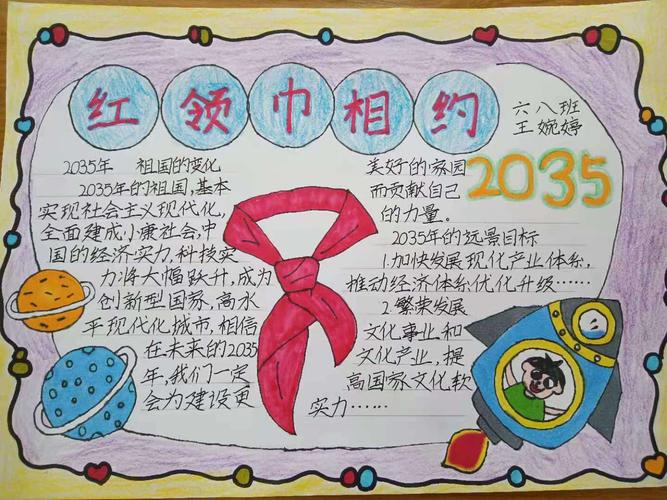 红领巾相约
2035
六八班
王婉婷
2035年 祖国的变化
2035年的祖国,基本
实现社会主义现代化,
全面建成小康社会,中
国的经济实力,科技实
力将大幅跃升,成为
创新型国家,高水
平现代化城市,相信
在未来的2035
年,我们一定
会为建设更
美好的家园
而贡献自己
的力量。
2035年的远景目标
1.加快发展现化产业体系,
推动经济体系优化升级……
2.繁荣发展
文化事业和
文化产业,提
高国家文化软
实力……